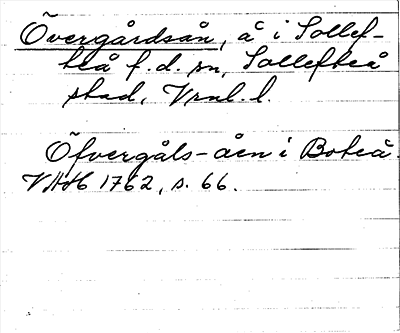 Övergårdsån, å i Sollef-
teå f.d. sn, Sollefteå
stad, Vrnl. l.
Öfvergåls-åen i Boteå.
VHAH 1762, s. 66.